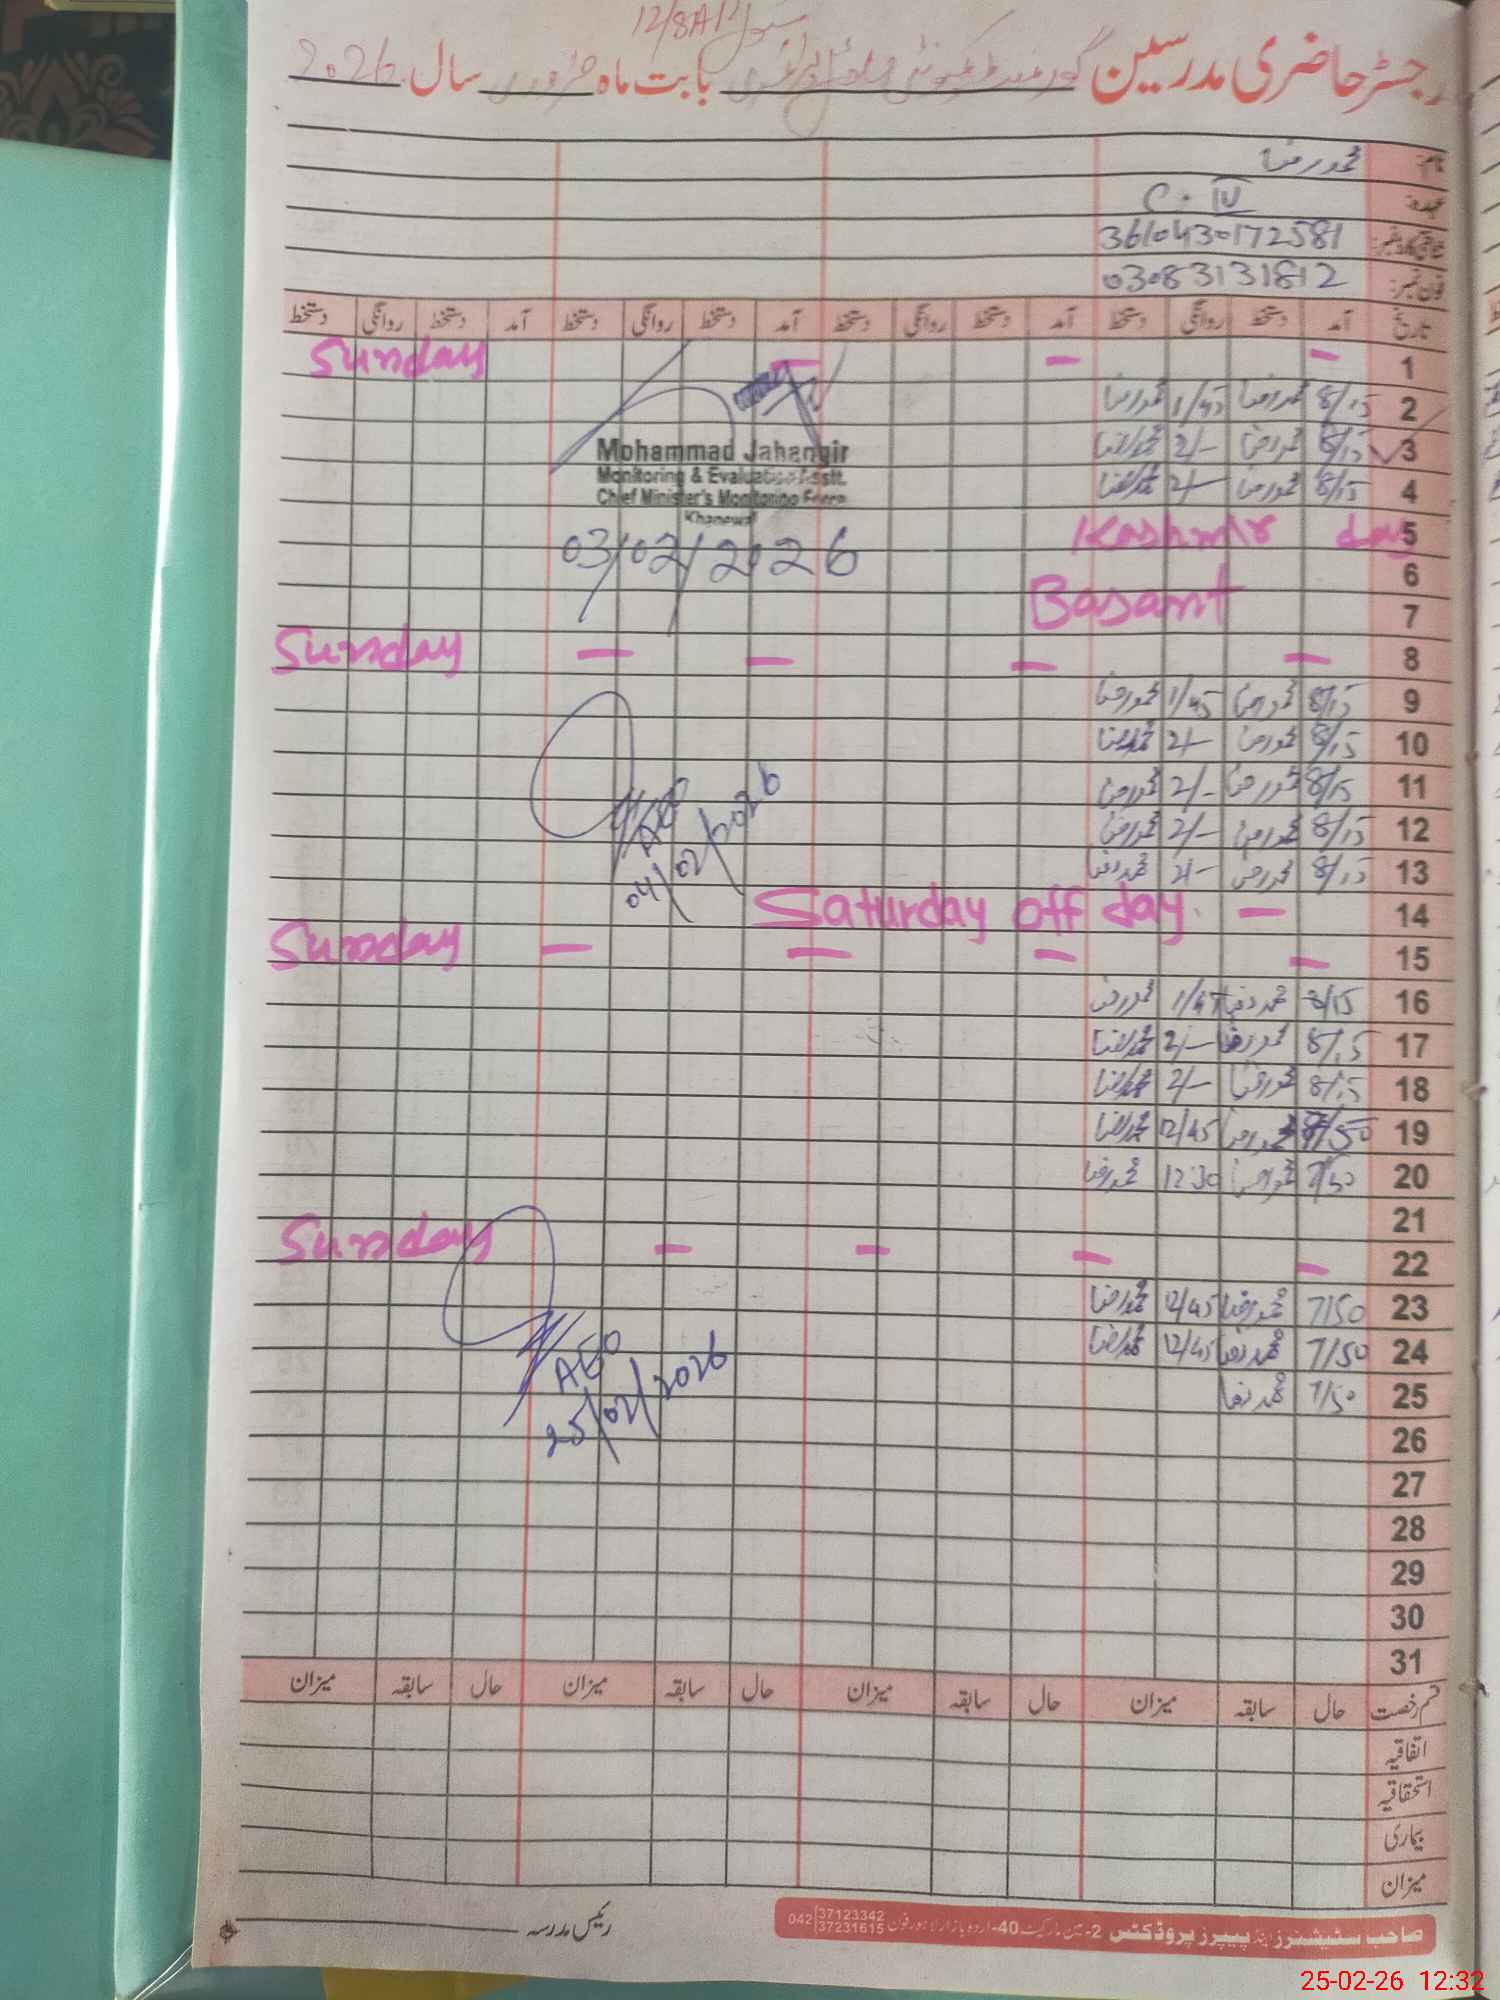 12/8AR
رجسٹر حاضری مدرسین گورنمنٹ بابت ماہ فروری سال 2026
نام: محمد رضا
عہدہ: C. IV
شناختی کارڈ نمبر: 3610430172581
فون نمبر: 03083131812
تاریخ آمد دستخط روانگی دستخط آمد دستخط روانگی دستخط آمد دستخط روانگی دستخط آمد دستخط روانگی دستخط
1 — — — Sunday
2 8/15 محمد رضا 1/45 محمد رضا
3 8/15 محمد رضا 2/- محمد رضا
4 8/15 محمد رضا 2/- محمد رضا
Mohammad Jahangir
Monitoring & Evaluation Asstt.
Chief Minister's Monitoring Force
Khanewal
03/02/2026
5 Kashmir day
6
7 Basant
8 — — — — Sunday
9 8/15 محمد رضا 1/45 محمد رضا
10 8/15 محمد رضا 2/- محمد رضا
11 8/15 محمد رضا 2/- محمد رضا
12 8/15 محمد رضا 2/- محمد رضا
13 8/15 محمد رضا 2/- محمد رضا
AEO
04/02/2026
14 Saturday off day —
15 — — — — Sunday
16 8/15 محمد رضا 1/45 محمد رضا
17 8/15 محمد رضا 2/- محمد رضا
18 8/15 محمد رضا 2/- محمد رضا
19 7/50 محمد رضا 12/45 محمد رضا
20 7/50 محمد رضا 12:30 محمد رضا
21
22 — — — — Sunday
23 7/50 محمد رضا 12/45 محمد رضا
24 7/50 محمد رضا 12/45 محمد رضا
25 7/50 محمد رضا
AEO
25/02/2026
26
27
28
29
30
31
قسم رخصت حال سابقہ میزان حال سابقہ میزان حال سابقہ میزان حال سابقہ میزان
اتفاقیہ
استحقاقیہ
بیماری
میزان
رئیس مدرسہ
صاحب سٹیشنرز اینڈ پیپرز پروڈکٹس 2-مین مارکیٹ 40-اردو بازار لاہور فون 042 37123342 37231615
25-02-26 12:32